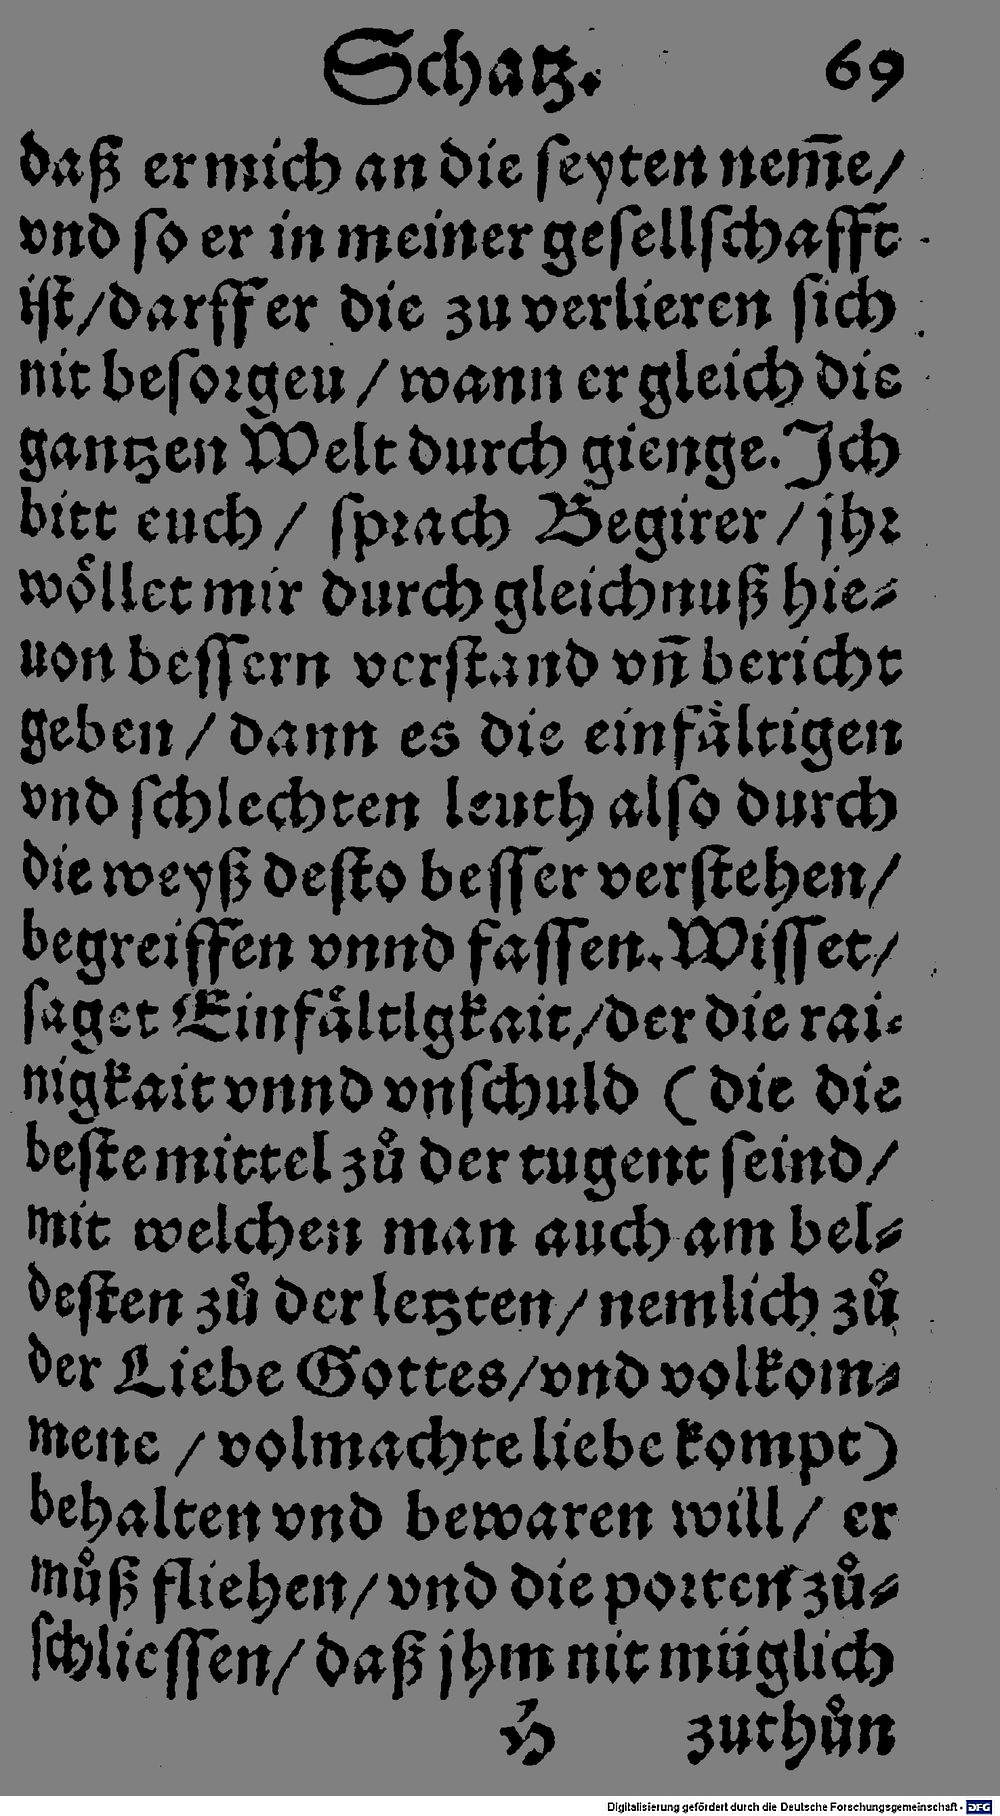 Schatz. 69
daß er mich an die ſeyten nem̃e/
vnd ſo er in meiner geſellſchafft
iſt/darff er die zu verlieren ſich
nit beſorgen / wann er gleich die
gantzen Welt durch gienge. Ich
bitt euch / ſprach Begirer / jhr
woͤllet mir durch gleichnuß hie⸗
uon beſſern verſtand vñ bericht
geben / dann es die einfaͤltigen
vnd ſchlechten leuth alſo durch
die weyß deſto beſſer verſtehen/
begreiffen vnnd faſſen. Wiſſet/
ſaget Einfaͤltlgkait/der die rai⸗
nigkait vnnd vnſchuld (die die
beſte mittel zuͦ der tugent ſeind/
mit welchen man auch am bel⸗
deſten zuͦ der letzten/nemlich zuͦ
der Liebe Gottes/vnd volkom⸗
mene / volmachte liebe kompt)
behalten vnd bewaren will / er
muͦß fliehen/vnd die porten zuͦ⸗
ſchlieſſen/daß jhm nit müglich
H zuthuͦn
Digitalisierung gefördert durch die Deutsche Forschungsgemeinschaft - DFG